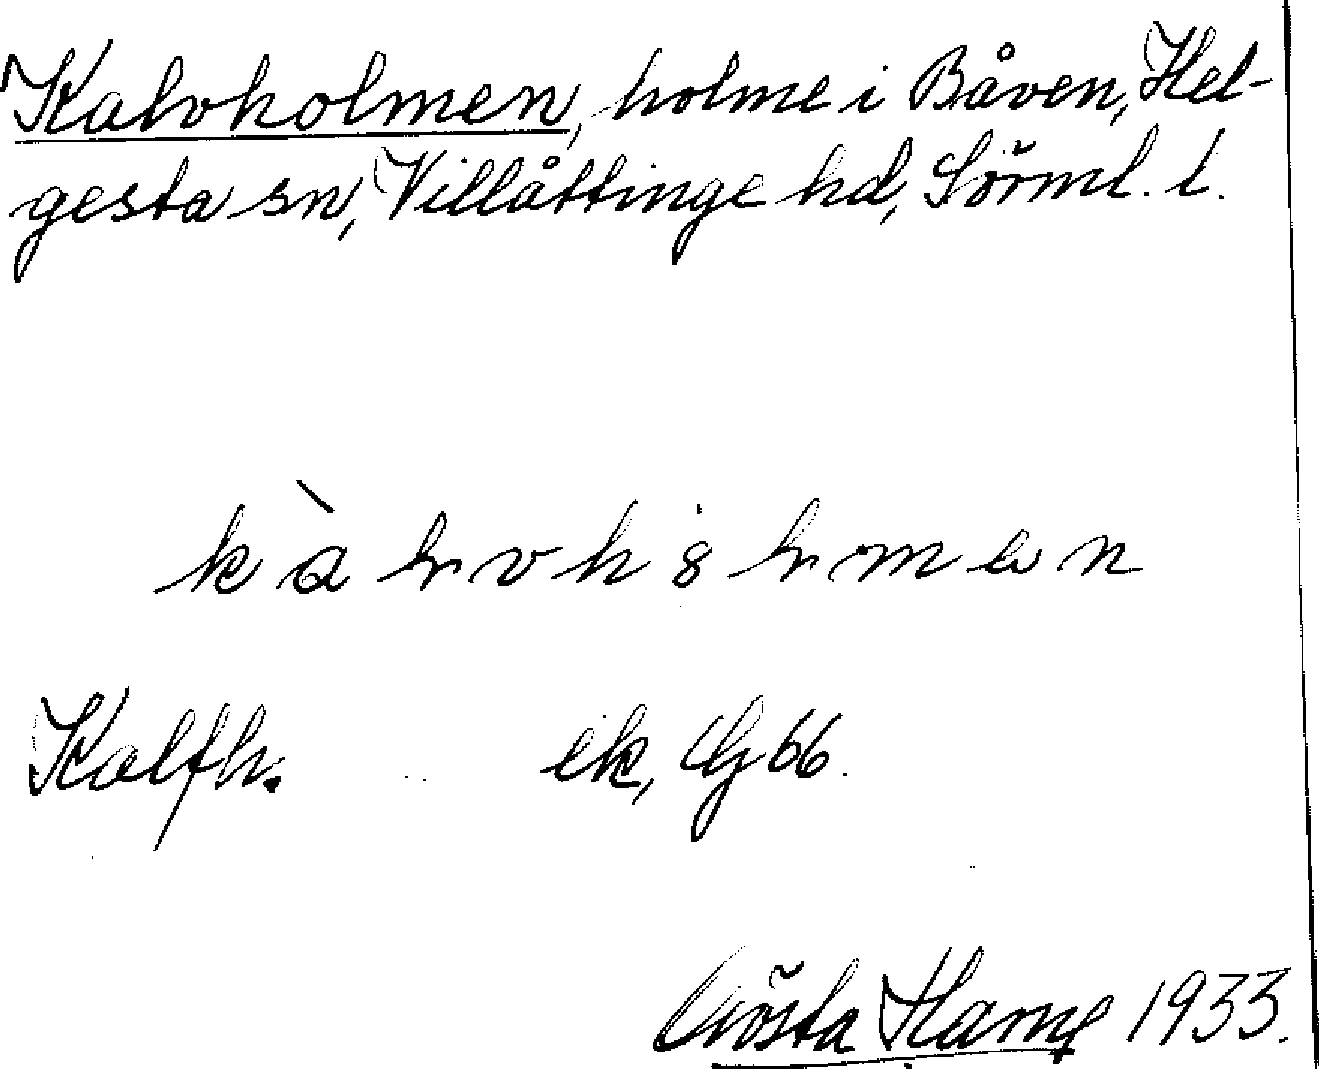 Kalvholmen, holme i Båven, Hel-
gesta sn, Villåttinge hd, Sörml. l.
Kalfh. ek, G 66.
Gösta Hamp 1933.